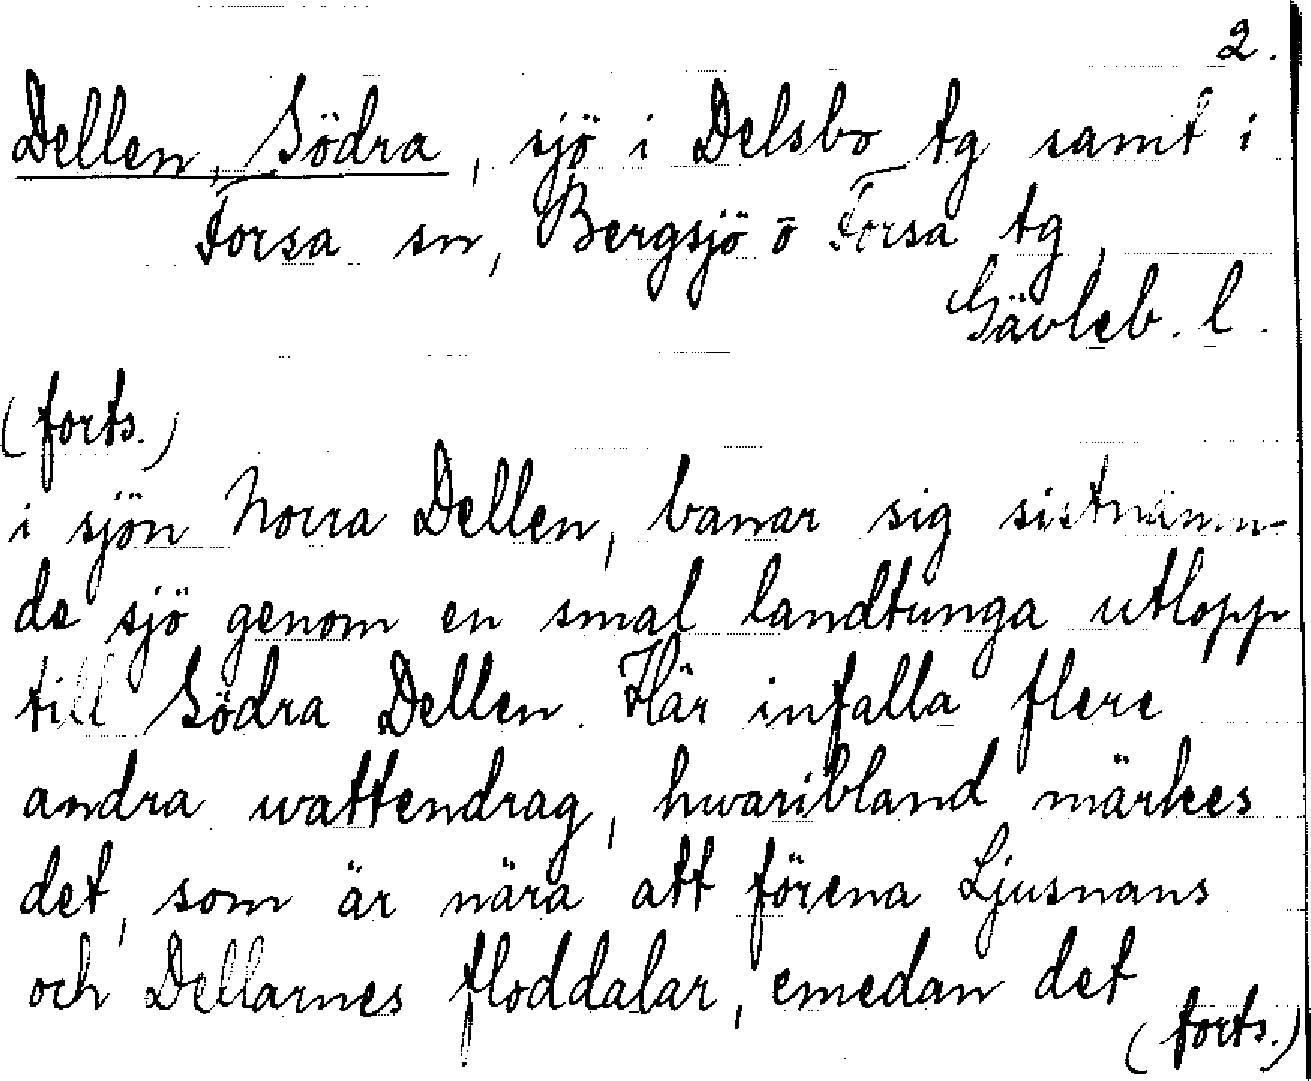 2.
Dellen, Södra, sjö i Delsbo tg samt i
Forsa sn, Bergsjö o Forsa tg,
Gävleb. l.
(forts.)
i sjön Norra Dellen, banar sig sistnämn-
de sjö genom en smal landtunga utlopp
till Södra Dellen. Här infalla flere
andra wattendrag, hwaribland märkes
det, som är nära att förena Ljusnans
och Dellarnes floddalar, emedan det
(forts.)